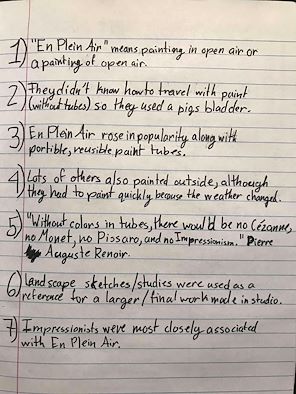 1) "En Plein Air" means painting in open air or
a painting of open air.
2) They didn't know how to travel with paint
(without tubes) so they used a pigs bladder.
3) En Plein Air rose in popularity along with
portible, reusible paint tubes.
4) Lots of others also painted outside, although
they had to paint quickly because the weather changed.
5) "Without colors in tubes, there would be no Cézanne,
no Monet, no Pissaro, and no Impressionism." Pierre
Auguste Renoir.
6) Landscape sketches/studies were used as a
reference for a larger/final work made in studio.
7) Impressionists were most closely associated
with En Plein Air.